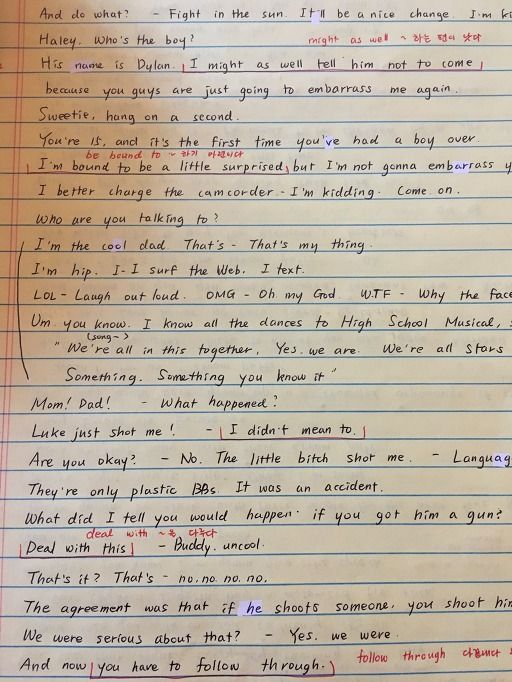 And do what? - Fight in the sun. It'll be a nice change. I'm ki
Haley. Who's the boy? might as well ~ 하는 편이 낫다
His name is Dylan. I might as well tell him not to come
because you guys are just going to embarrass me again.
Sweetie, hang on a second.
You're 15, and it's the first time you've had a boy over.
be bound to ~ 하기 마련이다
I'm bound to be a little surprised, but I'm not gonna embarrass y
I better charge the camcorder - I'm kidding. Come on.
Who are you talking to?
I'm the cool dad. That's - That's my thing.
I'm hip. I-I surf the Web. I text.
LOL - Laugh out loud. OMG - Oh my God. WTF - Why the face
Um. you know. I know all the dances to High School Musical, s
(song~)
"We're all in this together. Yes. we are. We're all stars
Something. Something you know it"
Mom! Dad! - What happened?
Luke just shot me! - I didn't mean to.
Are you okay? - No. The little bitch shot me. - Languag
They're only plastic BBs. It was an accident.
What did I tell you would happen if you got him a gun?
deal with ~을 다루다
Deal with this - Buddy. uncool.
That's it? That's - no. no. no. no.
The agreement was that if he shoots someone, you shoot him
We were serious about that? - Yes. we were.
And now you have to follow through. follow through